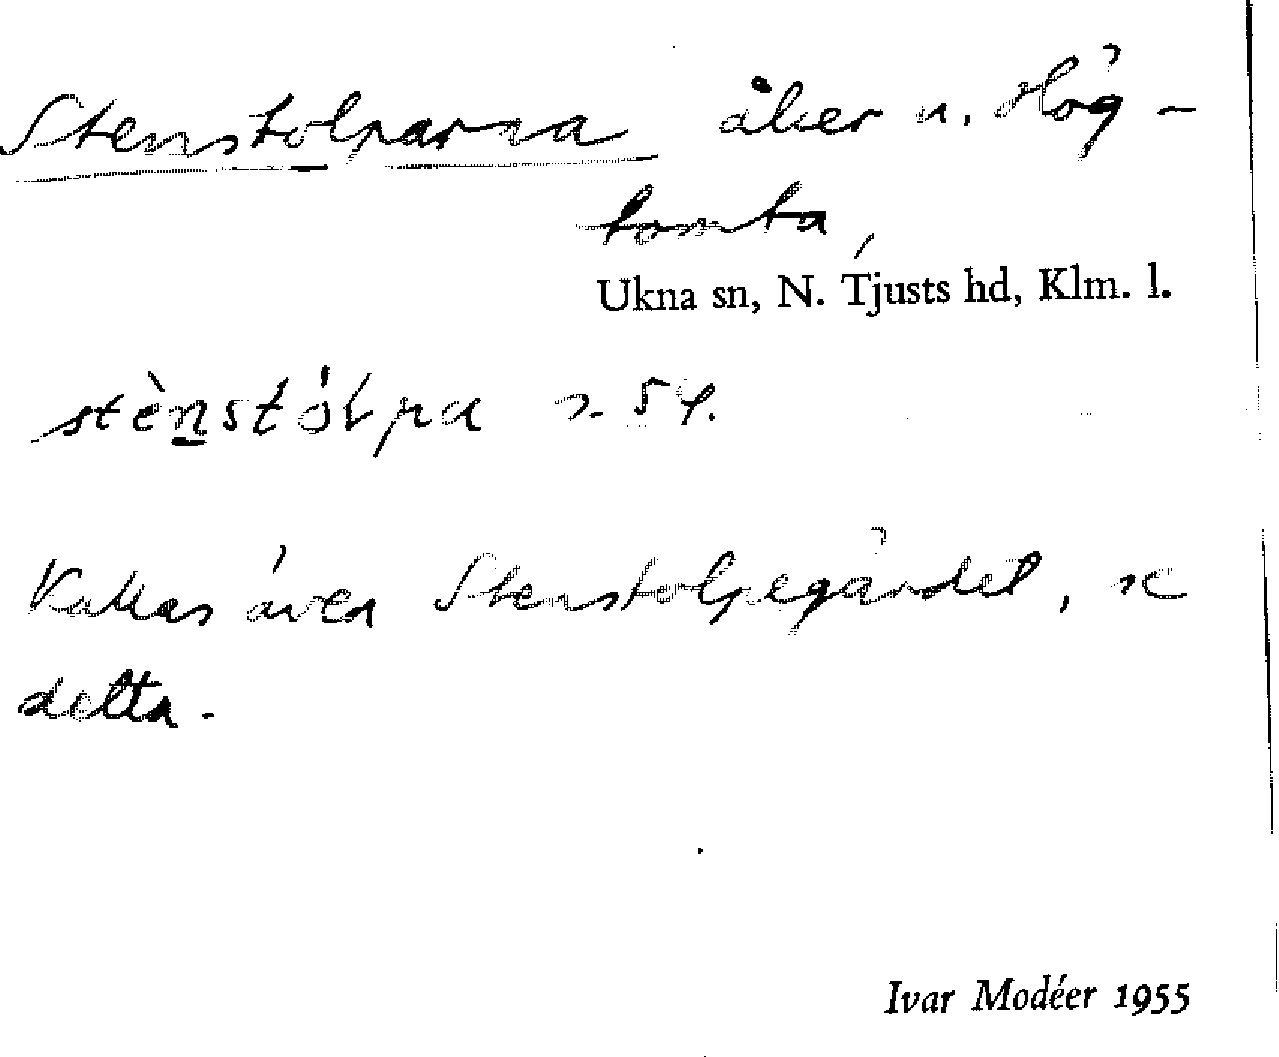 Stenstolparna åker u. Hög-
tomta,
Ukna sn, N. Tjusts hd, Klm. l.
stènstólpa s. 54.
Kallas även Stenstolpegärdet, se
detta.
Ivar Modéer 1955